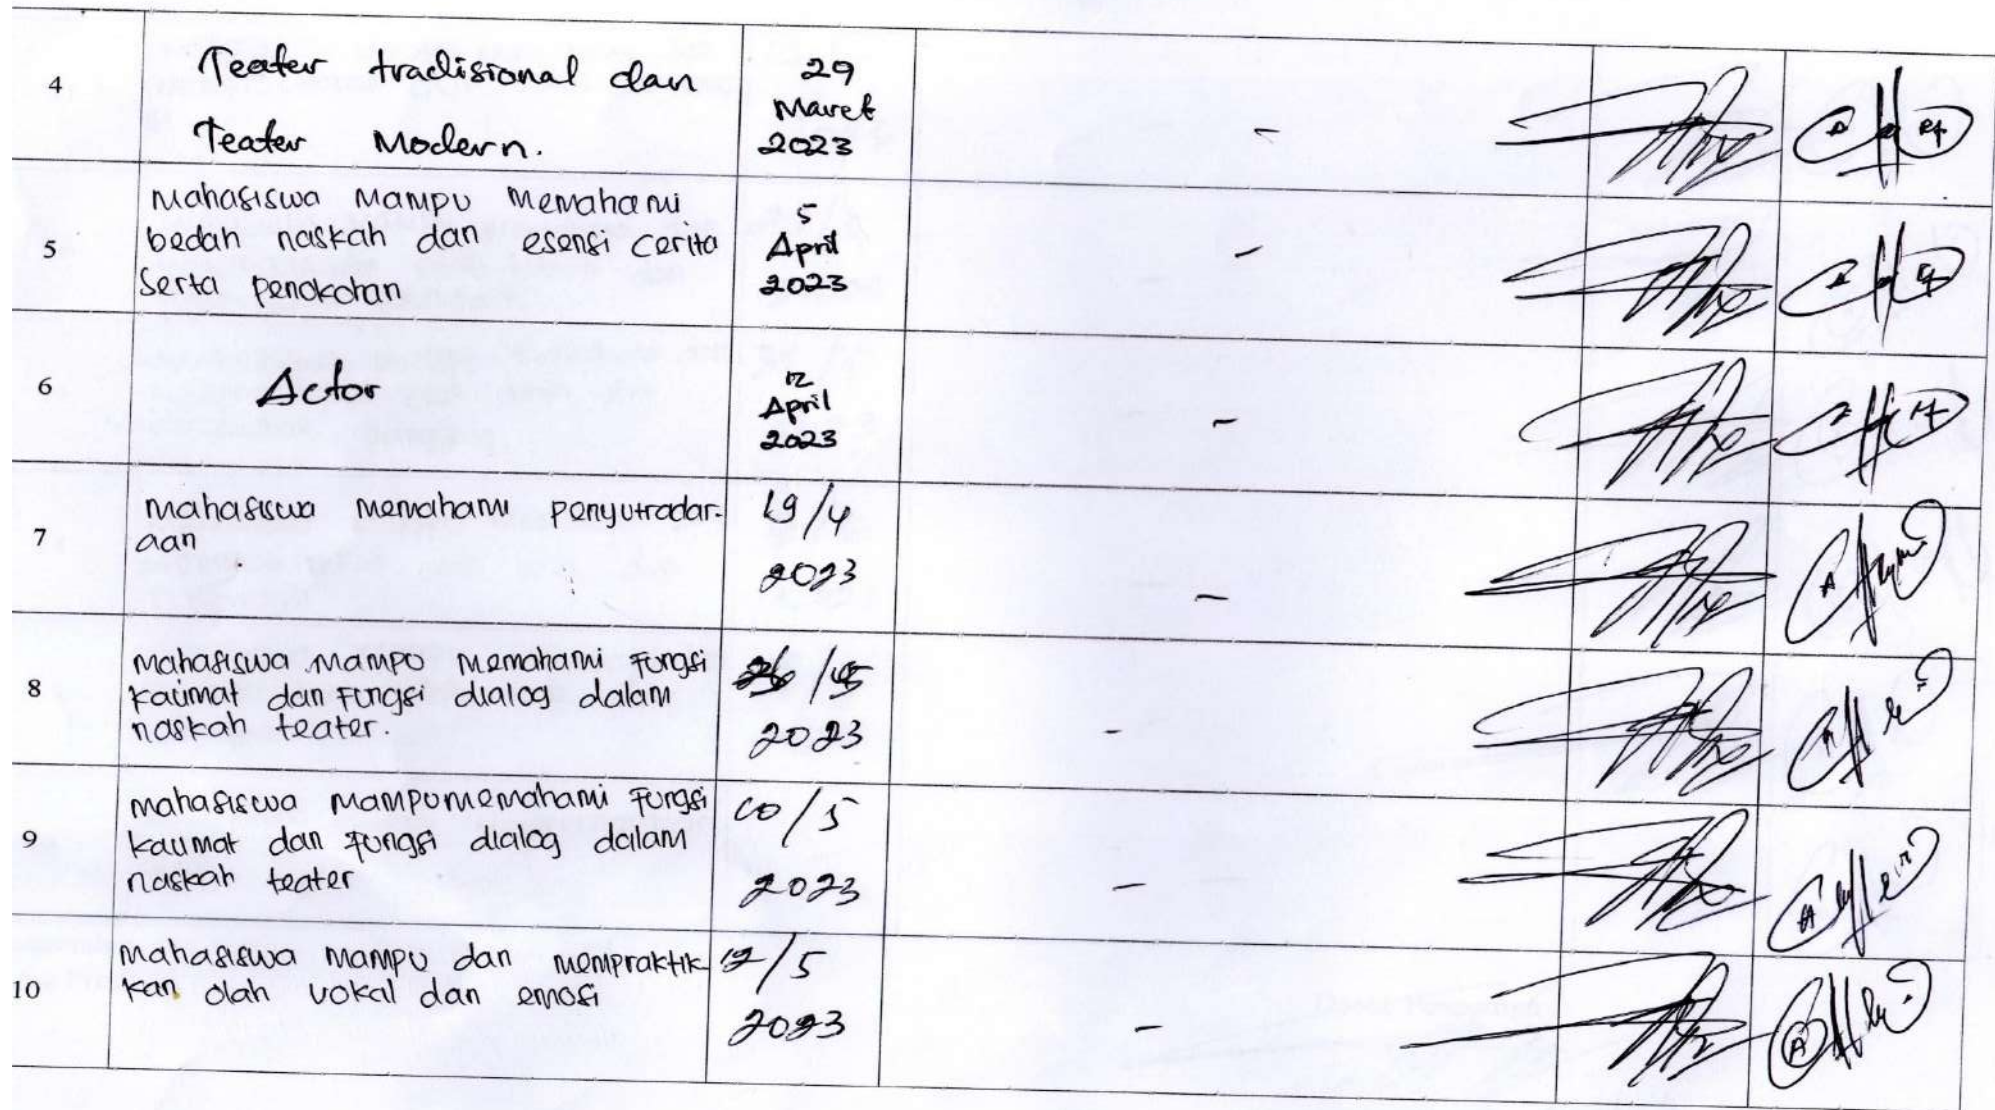 4
Teater tradisional dan
Teater Modern.
29
Maret
2023
-
5
Mahasiswa Mampu Memahami
bedah naskah dan esensi cerita
Serta penokohan
5
April
2023
-
6
Actor
12
April
2023
-
7
mahasiswa memahami penyutradar-
aan
19/4
2023
-
8
Mahasiswa mampu memahami Fungsi
kalimat dan Fungsi dialog dalam
naskah teater.
2023
-
9
mahasiswa mampu memahami Fungsi
kalimat dan Fungsi dialog dalam
naskah teater
10/5
2023
-
10
mahasiswa mampu dan mempraktik-
kan olah vokal dan emosi
/5
2023
-